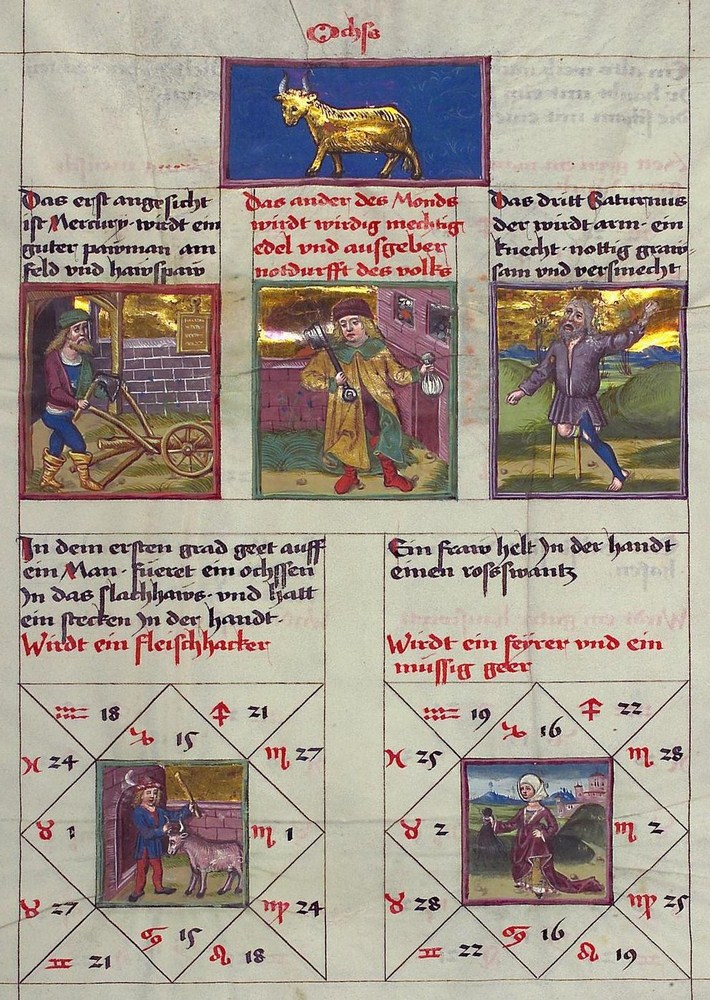 Ochs
Das erst angesicht
ist Mercury · wirdt ein
guter pawman am
feld vnd hawspaw
das ander des Monds
wirdt wirdig mechtig
edel vnd ausgeber
notdurfft des volks
Das dritt Saturnus
der wirdt arm · ein
knecht · nottig graw
sam vnd versmecht
In dem ersten grad geet auff
ein Man · fueret ein ochssen
In das slachhaws · vnd hatt
ein stecken In der handt ·
Wirdt ein fleischhacker
Ein fraw helt In der handt
einen rossswantz
Wirdt ein feyrer vnd ein
mussig geer
♒ 18 ♐ 21
♑ 15
♓ 24 ♏ 27
♉ 1 ♏ 1
♉ 27 ♍ 24
♋ 15
♊ 21 ♌ 18
♒ 19 ♐ 22
♑ 16
♓ 25 ♏ 28
♉ 2 ♏ 2
♉ 28 ♍ 25
♋ 16
♊ 22 ♌ 19